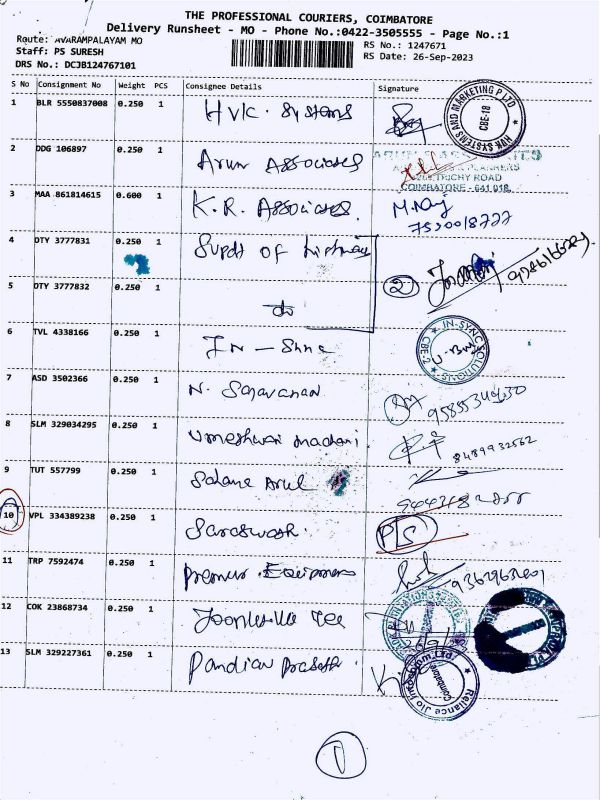 THE PROFESSIONAL COURIERS, COIMBATORE
Delivery Runsheet - MO - Phone No.:0422-3505555 - Page No.:1
Route: AVARAMPALAYAM MO
RS No.: 1247671
Staff: PS SURESH
RS Date: 26-Sep-2023
DRS No.: DCJB124767101
S No Consignment No Weight PCS Consignee Details Signature
1 BLR 5550837008 0.250 1 HVK. Systems
HRK SYSTEMS AND MARKETING P LTD CBE-18
2 DDG 106897 0.250 1 Arun Associates
TRICHY ROAD
COIMBATORE - 641 018
3 MAA 861814615 0.600 1 K.R. Associates.
7530018777
4 DTY 3777831 0.250 1 Supdt of
2
5 DTY 3777832 0.250 1 do
6 TVL 4338166 0.250 1 IN - Sync
IN-SYNC SOLUTIONS CBE-2
7 ASD 3502366 0.250 1 N. Saravanan
8 SLM 329034295 0.250 1 Umeshwari
8489932562
9 TUT 557799 0.250 1 Arul
10 VPL 334389238 0.250 1 Saraswathi.
P/S
11 TRP 7592474 0.250 1 Premier Equipments
12 COK 23868734 0.250 1
13 SLM 329227361 0.250 1 Pandian Prasath.
Reliance Jio Infocomm Ltd Coimbatore
1